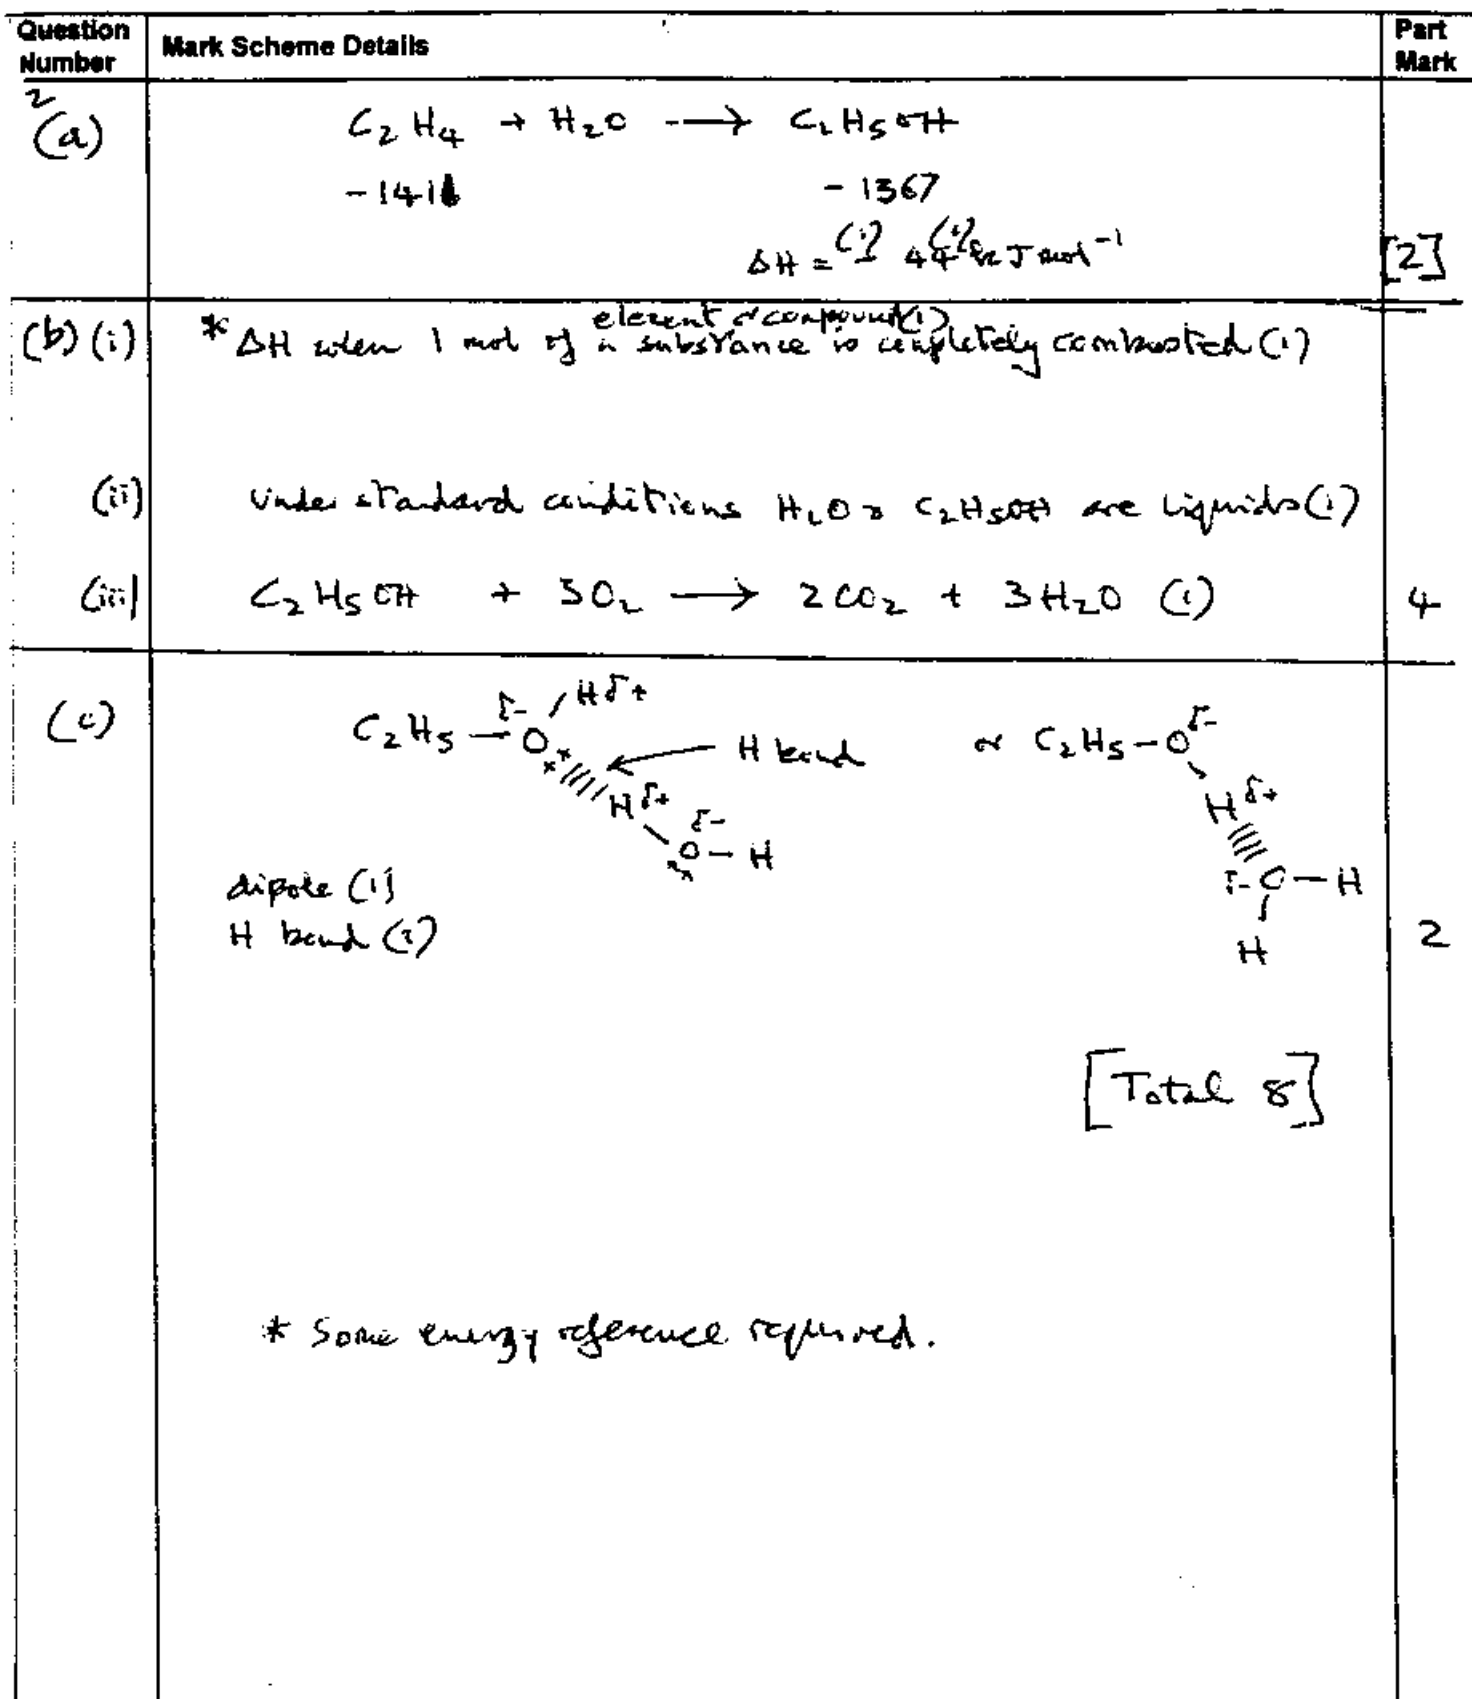 Question Number
Mark Scheme Details
Part Mark
2
(a)
C₂H₄ + H₂O → C₂H₅OH
-1411 -1367
(1) (1)
ΔH = - 44 kJ mol⁻¹
[2]
(b) (i)
element or compound (1)
* ΔH when 1 mol of a substance is completely combusted (1)
(ii) Under standard conditions H₂O & C₂H₅OH are liquids (1)
(iii) C₂H₅OH + 3O₂ → 2CO₂ + 3H₂O (1) 4
(c)
δ- Hδ+
C₂H₅ – O H bond or C₂H₅ – Oδ-
Hδ+ Hδ+
δ-
O – H
δ- O – H
H
dipole (1)
H bond (1)
2
[Total 8]
* Some energy reference required.